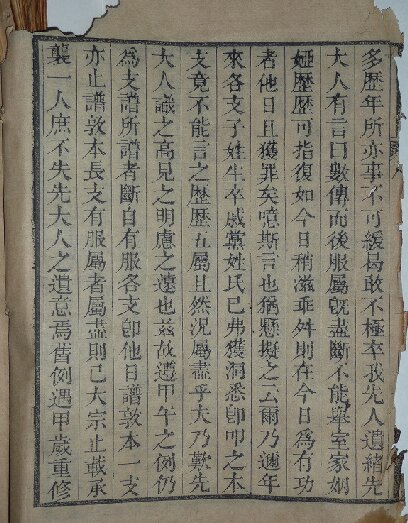 多歷年所亦事不可緩曷敢不極卒我先人遺緒先
大人有言曰數傳而後服屬旣盡斷不能舉室家姻
婭歷歷可指復如今日稍滋乖舛則在今日為有功
者他日且獲罪矣噫斯言也猶懸擬之云爾乃週年
來各支子姓生卒戚黨姓氏已弗獲洞悉卽叩之本
支竟不能言之歷歷五屬且然況屬盡乎夫乃歎先
大人識之高見之明慮之遠也茲故遵甲午之例仍
為支譜所譜者斷自有服各支卽他日譜敦本一支
亦止譜敦本長支有服屬者屬盡則已大宗止載承
襲一人庶不失先大人之遺意焉舊例遇甲歲重修